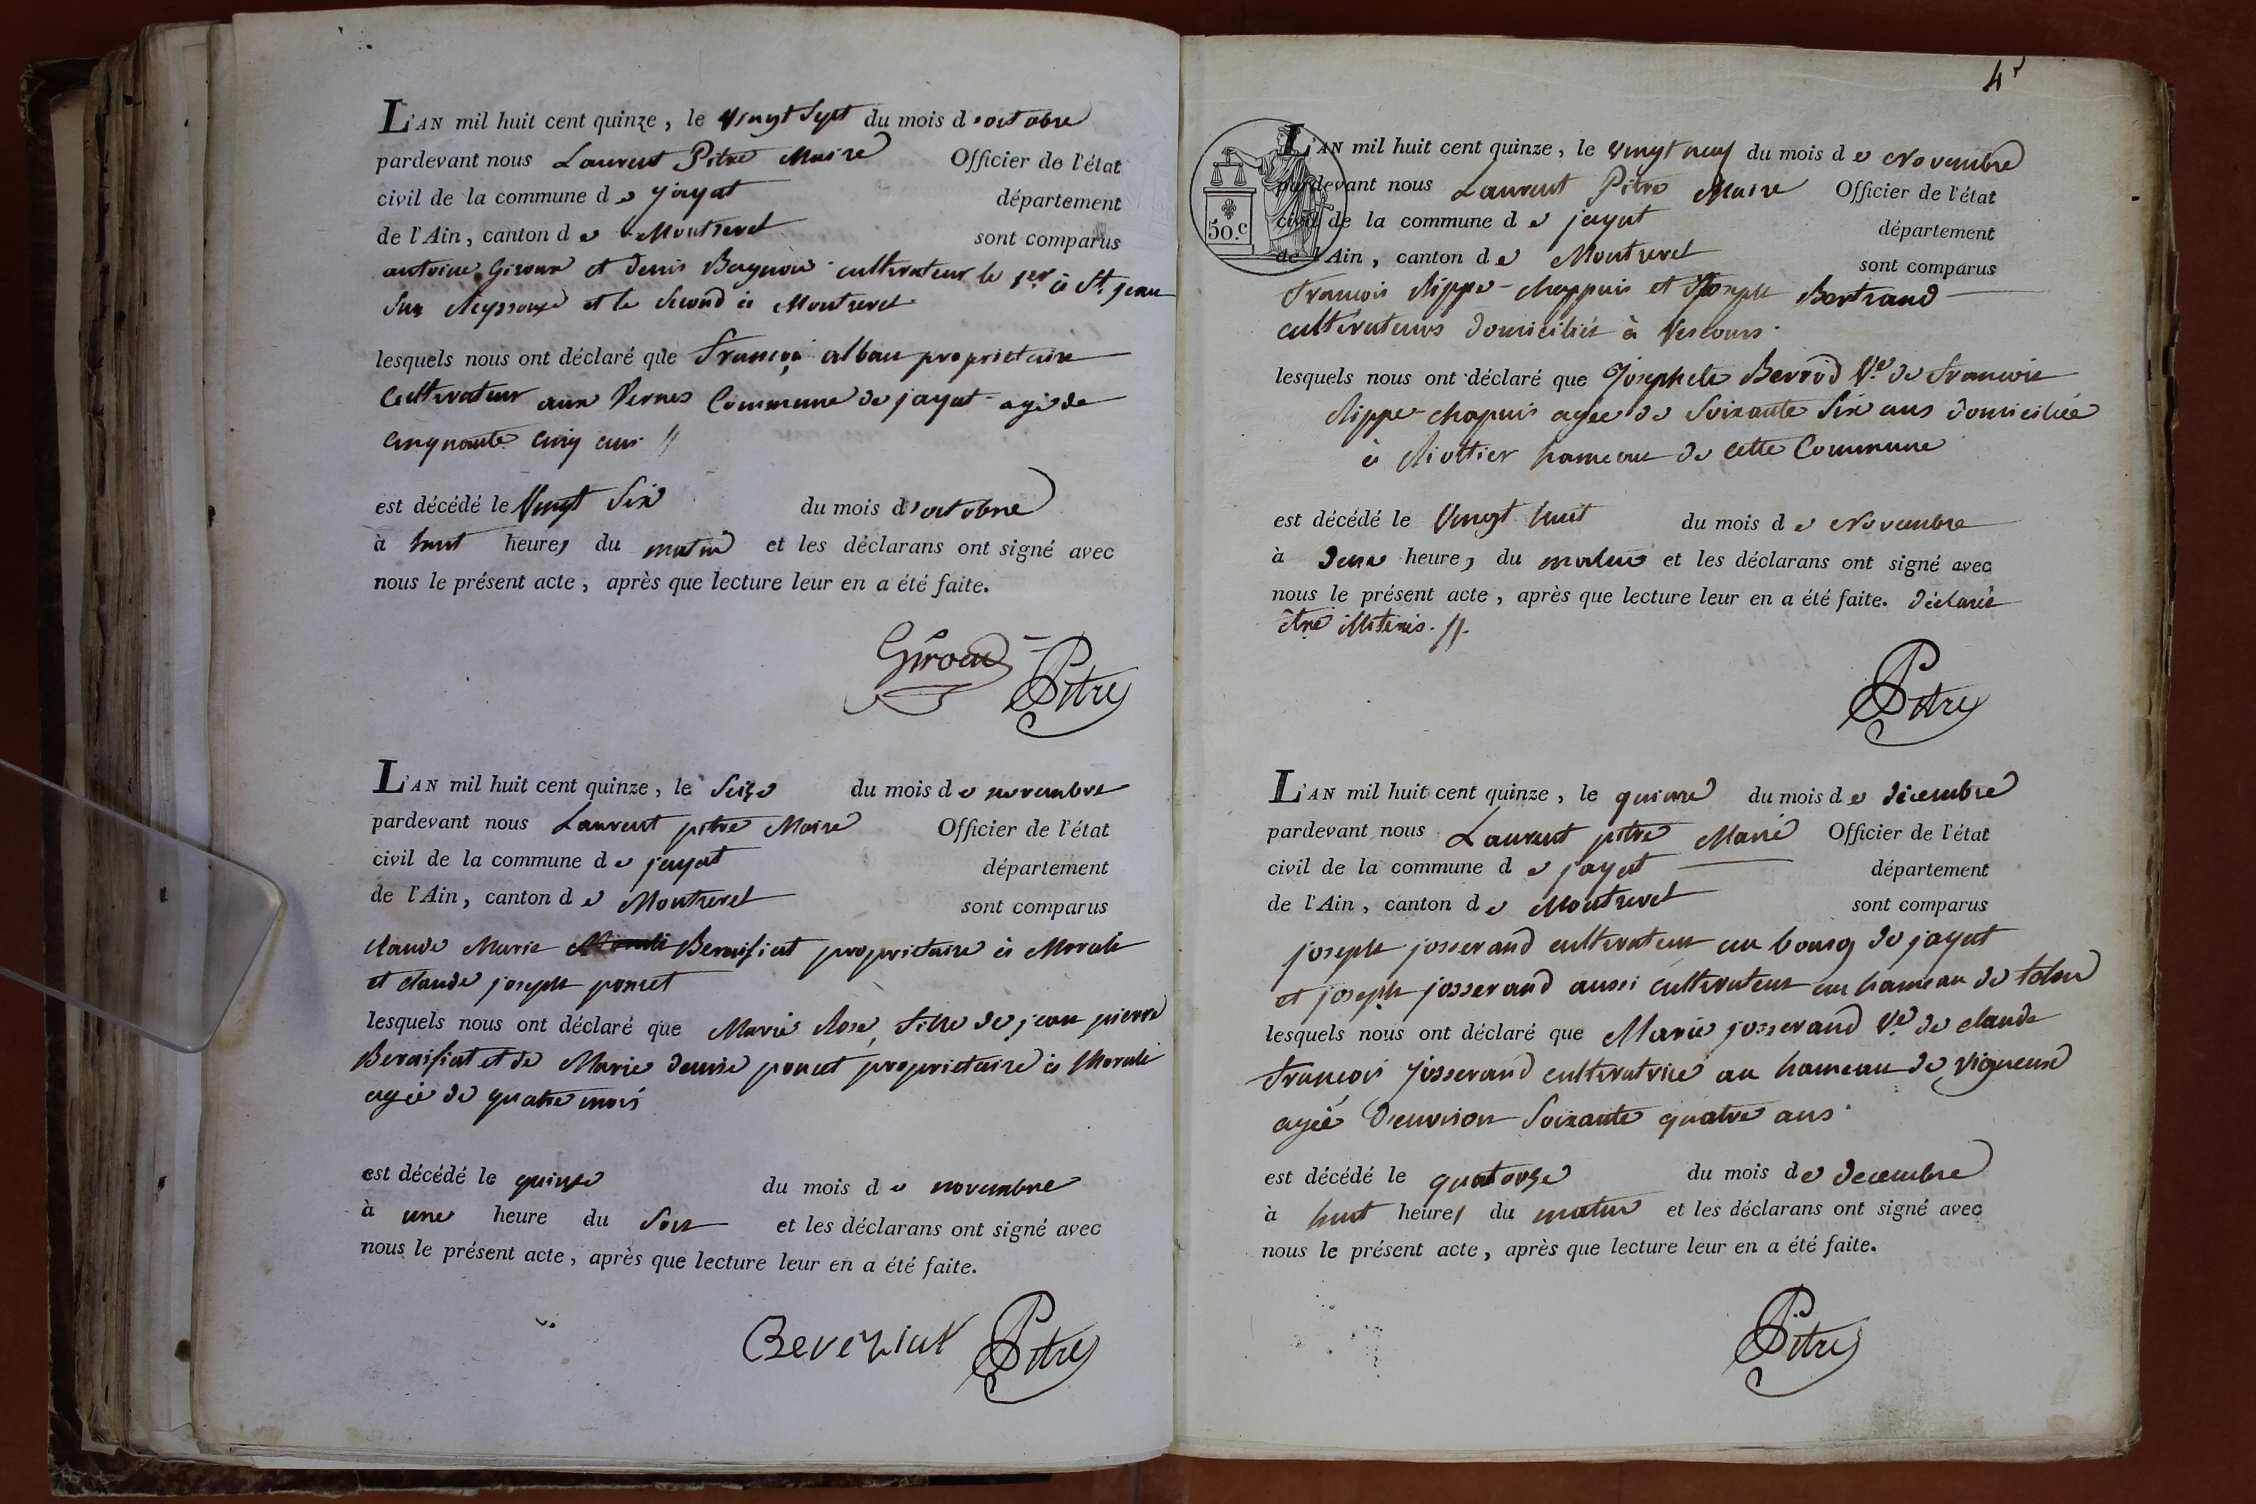 L'AN mil huit cent quinze, le vingt sept du mois d'octobre
pardevant nous Laurent Pitre Maire Officier de l'état
civil de la commune de jayat département
de l'Ain, canton de Montrevel sont comparus
antoine Giroux et denis Bagnoud cultivateur le 1er à St. jean
sur Reyssouze et le second à Montrevel
lesquels nous ont déclaré que françois alban propriétaire
Cultivateur aux Vernes Commune de jayat agé de
cinquante cinq ans //
est décédé le Vingt Six du mois d'octobre
à huit heures du matin et les déclarans ont signé avec
nous le présent acte, après que lecture leur en a été faite.
Giroud Pitre
L'AN mil huit cent quinze, le Seize du mois de novembre
pardevant nous Laurent pitre Maire Officier de l'état
civil de la commune de jayat département
de l'Ain, canton de Montrevel sont comparus
claude Marie Beraifiat propriétaire à Morali
et claude joseph poncet
lesquels nous ont déclaré que Marie Rose, fille de jean pierre
Beraifiat et de Marie denise poncet propriétaire à Morali
agée de quatre mois
est décédé le quinze du mois de novembre
à une heure du Soir et les déclarans ont signé avec
nous le présent acte, après que lecture leur en a été faite.
Beveziat Pitre
4
50.c
L'AN mil huit cent quinze, le vingt neuf du mois de Novembre
pardevant nous Laurent Pitre Maire Officier de l'état
civil de la commune de jayat département
de l'Ain, canton de Montrevel sont comparus
François Rippe-chappuis et Joseph Bertrand
cultivateurs domiciliés à Vescours.
lesquels nous ont déclaré que Josephete Berrod Ve. de francois
Rippe-chapuis agée de Soixante Six ans domiciliée
à Riottier hameau de cette Commune
est décédé le Vingt huit du mois de Novembre
à deux heures du matin et les déclarans ont signé avec
nous le présent acte, après que lecture leur en a été faite. déclaré
être illiterés. //.
Pitre
L'AN mil huit cent quinze, le quinze du mois de décembre
pardevant nous Laurent pitre Maire Officier de l'état
civil de la commune de jayat département
de l'Ain, canton de Montrevel sont comparus
joseph josserand cultivateur au bourg de jayat
et joseph josserand aussi cultivateur au hameau de tolon
lesquels nous ont déclaré que Marie josserand Ve. de claude
François Josserand cultivatrice au hameau de vigneux
agée d'environ Soixante quatre ans.
est décédé le quatorze du mois de decembre
à huit heures du matin et les déclarans ont signé avec
nous le présent acte, après que lecture leur en a été faite.
Pitre